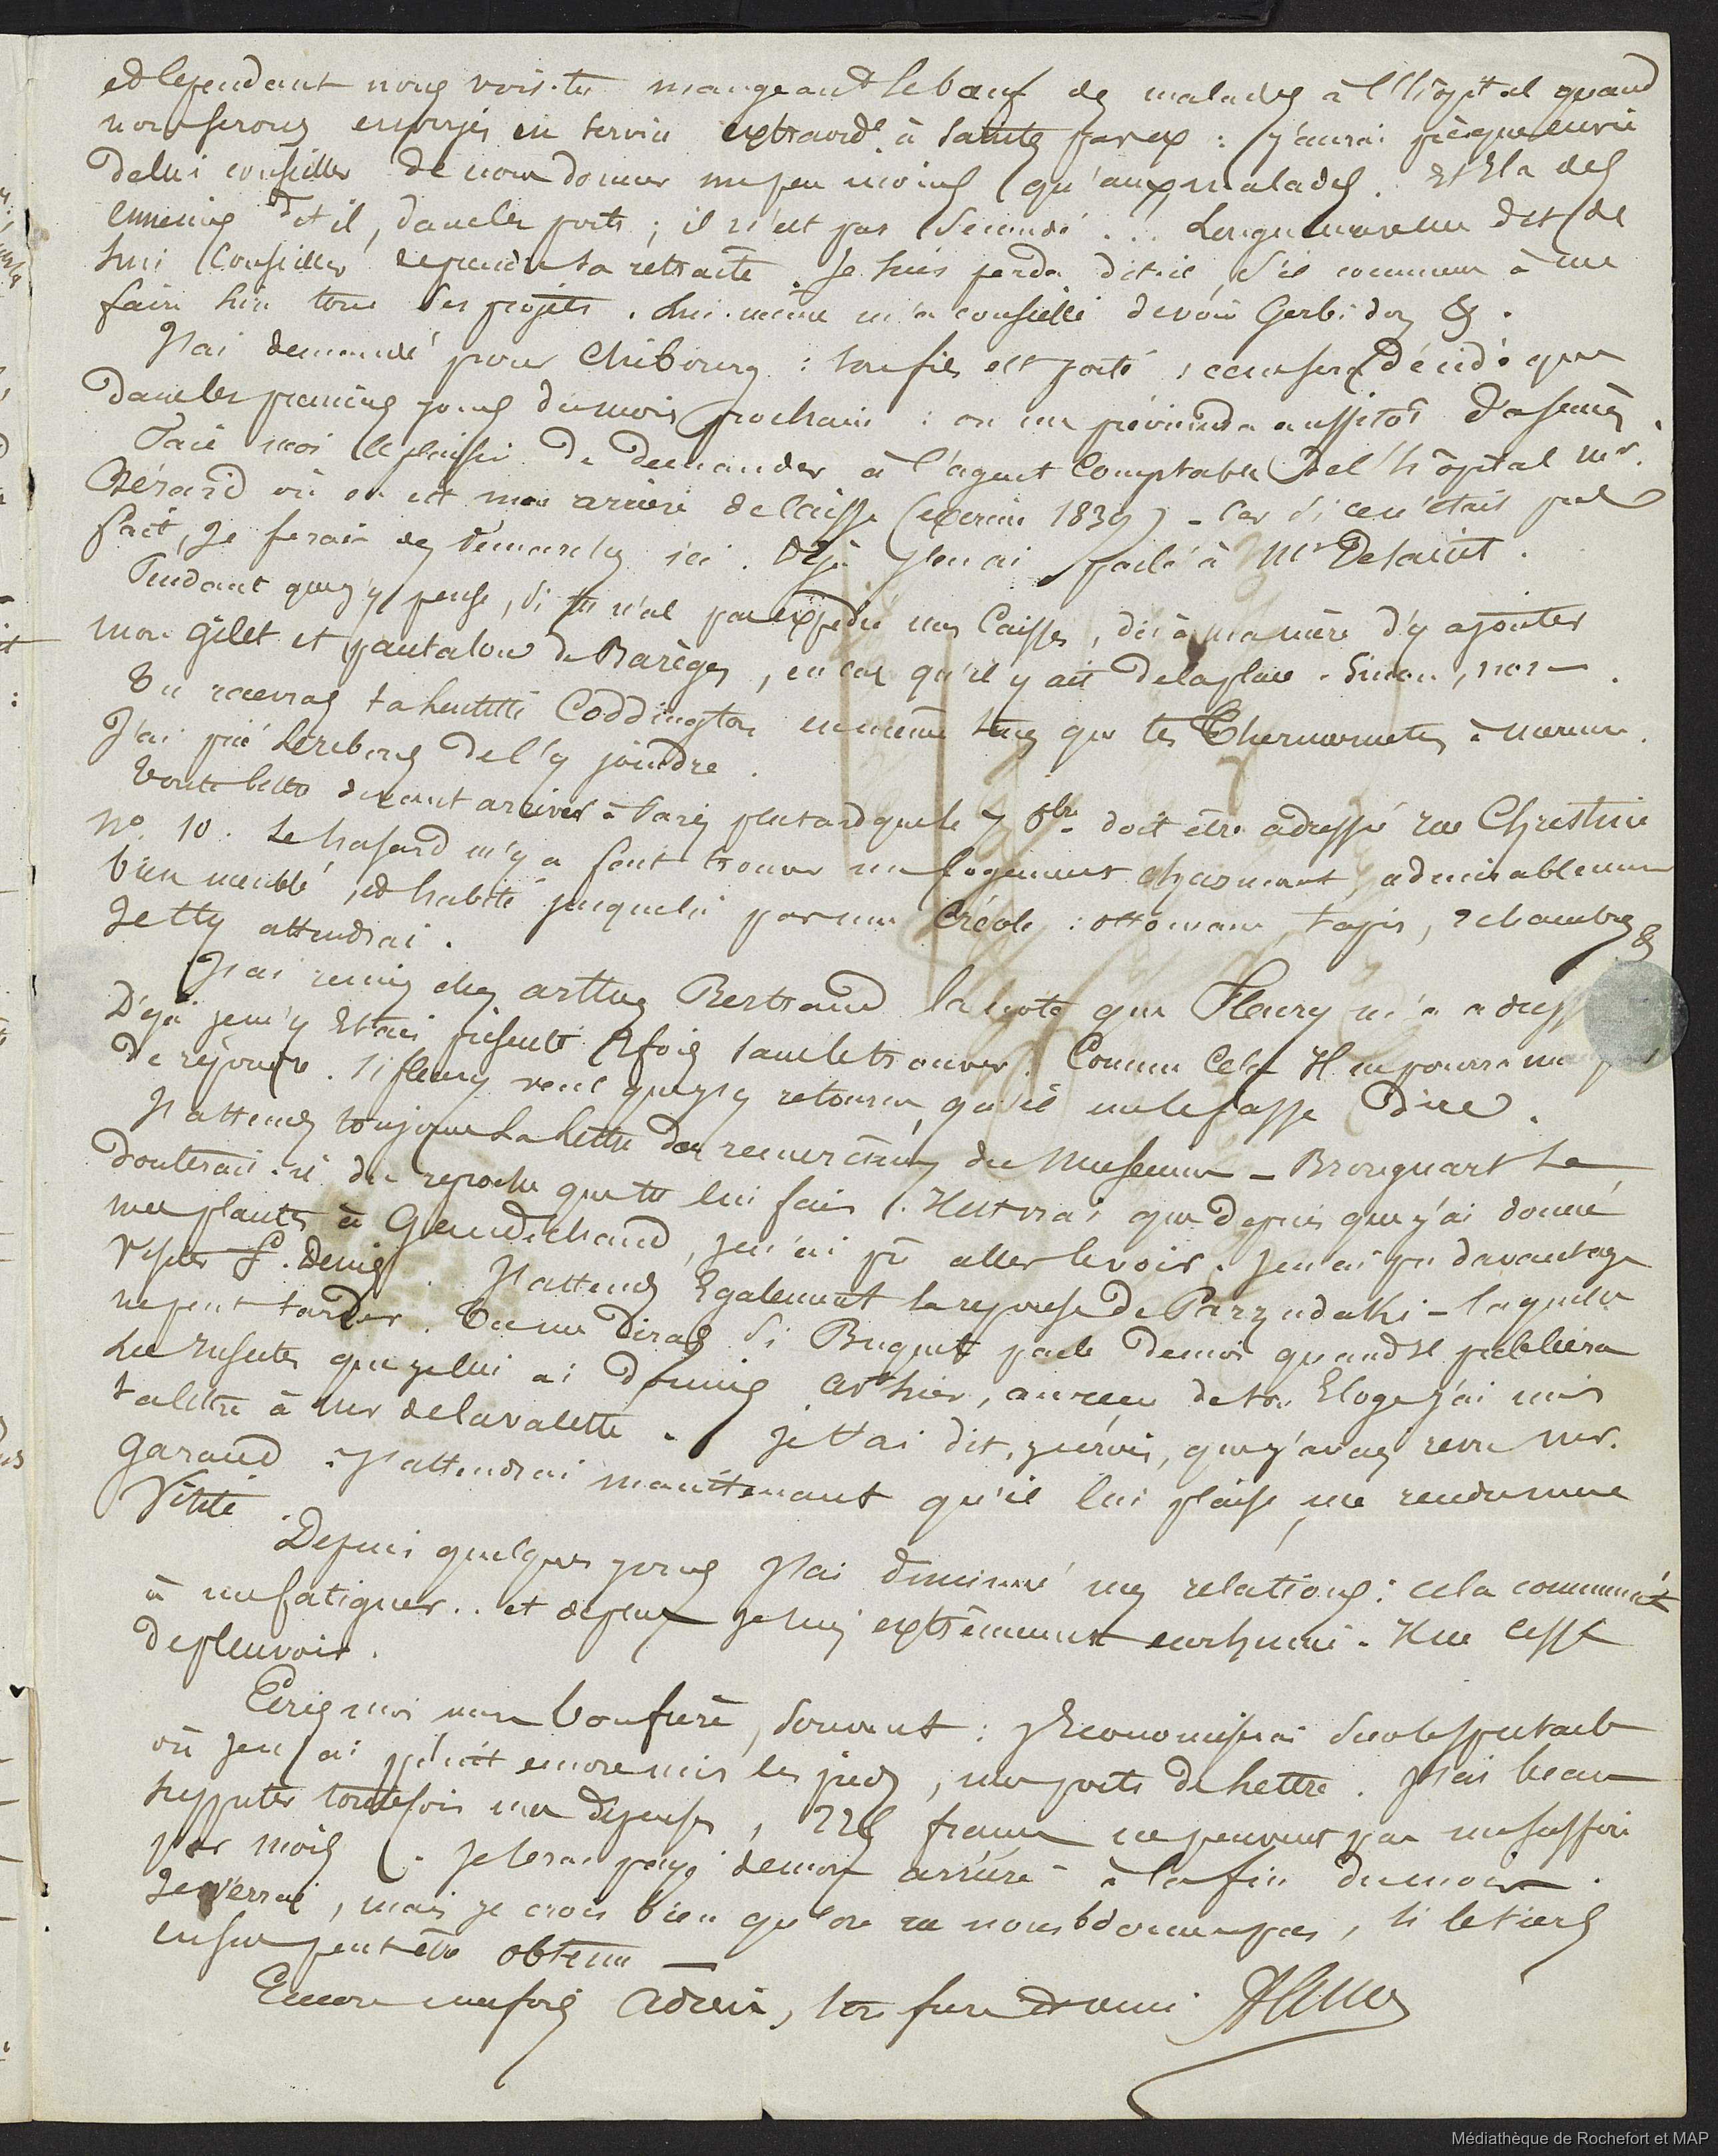 et cependant nous vois-tu mangeant le bœuf des malades à l'hôpital quand
nous serons envoyés en service extraord.e à Saintes par ex : j'aurai presque envie
de lui conseiller de nous donner un peu moins qu'aux malades. Il a des
ennemis dit il, dans les ports ; il n'est pas secondé ... dit de
lui conseiller de prendre sa retraite. Je suis perdu dit-il, s'il continue à me
faire lire tous ses projets. Lui-même m'a conseillé de voir Gerbidon &.
J'ai demandé pour Chibourg : son fils est porté, ce ne sera décidé que
dans les premiers jours du mois prochain : on me préviendra aussitôt
Fais moi le plaisir de demander à l'agent Comptable de l'hôpital Mr.
Bérard où en est mon arriéré de caisse (exercice 1839) - Car si ce n'était pas
fait, je ferais des démarches ici. Déjà j'en ai parlé à Mr Delaint.
Pendant que j'y pense, si tu n'as pas expédié mes Caisses, dis à ma mère d'y ajouter
mon gilet et pantalon de Barèges, en cas qu'il y ait de la place. Sinon, non.
Tu recevras ta lentille Coddington en même temps que tes thermomètres à mercure.
J'ai prié Lerebours de l'y joindre.
Toute lettre devant arriver à Paris plus tard que le 7 8bre doit être adressée rue Christine
No. 10. Le hasard m'y a fait trouver un logement charmant, admirablement
bien meublé, et habité jusqu'ici par un Créole : ottomane, tapis, 2 chambres &
Je t'y attendrai.
J'ai remis chez arthus Bertrand la note que Fleury m'a
Déjà je m'y étais présenté 2 fois sans le trouver. Comme cela Il ne pourra
de répondre. Si fleury veut que j'y retourne, qu'il me le fasse dire.
J'attends toujours la lettre de remerciement du Museum - Brongniart se
douterait-il du reproche que tu lui fais. Il est vrai que depuis que j'ai donné
mes plantes à Gaudichaud, je n'ai pu aller le voir. Je n'ai pu davantage
visiter St. Denis. J'attends Egalement la réponse de Parzudaki - laquelle
ne peut tarder. Tu me diras si Buquet parle de moi quand Il publiera
les insectes que je lui ai donnés. Avt hier, au reçu de ton Eloge j'ai mis
ta lettre à Mr delavalette. Je t'ai dit, je crois, que j'avais revu Mr.
Garaud. J'attendrai maintenant qu'il lui plaise me rendre une
Visite.
Depuis quelques jours J'ai diminué mes relations : cela commençait
à me fatiguer.. et de plus je suis extrêmement enrhumé. Il ne cesse
de pleuvoir.
Ecris moi mon bon frère, souvent : J'Economiserai sur le spectacle
où je n'ai point encore mis les pieds, mes ports de lettre. J'ai beau
supputer toutefois mes dépenses, 225 francs ne peuvent pas me suffire
par mois. Je serai payé de mon arriéré à la fin du mois.
Je verrai, mais je crois bien qu'on ne nous le donne pas, si le tiers
en sus peut être obtenu -
Encore une fois Adieu, ton frère et ami
Médiathèque de Rochefort et MAP